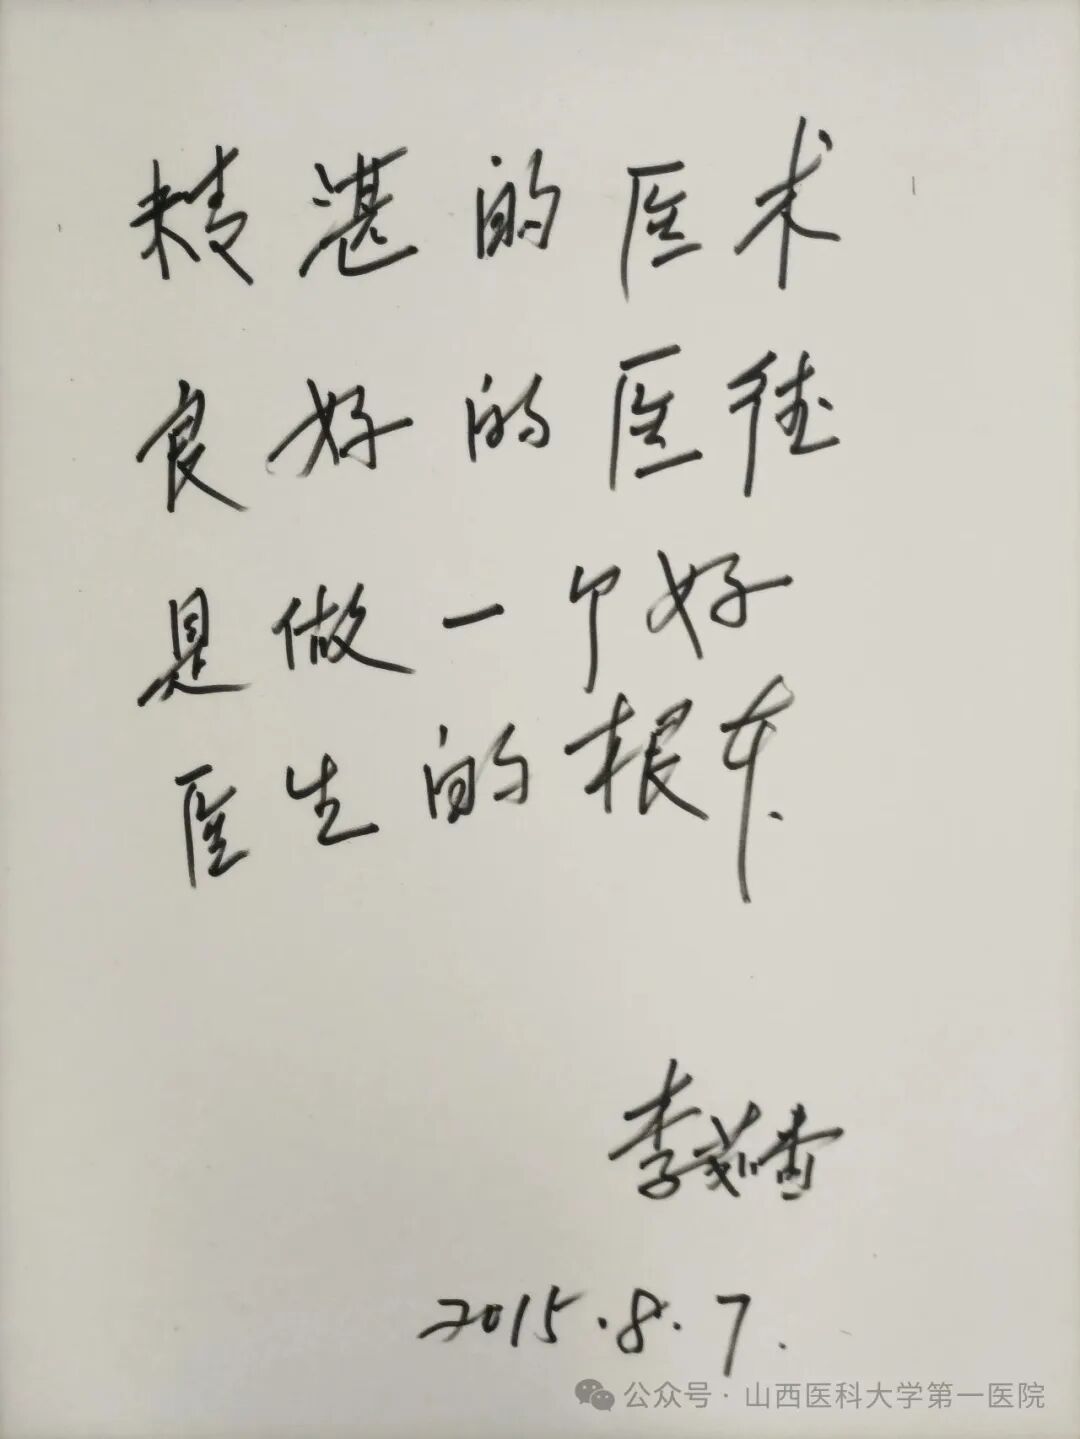 精湛的医术
良好的医德
是做一个好
医生的根本.
李茹香
2015.8.7.
公众号·山西医科大学第一医院